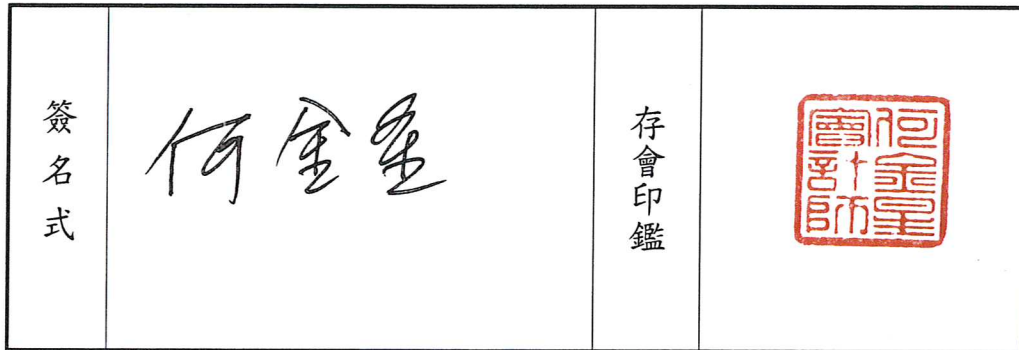 簽名式
何金星
存會印鑑
何金星
會計師